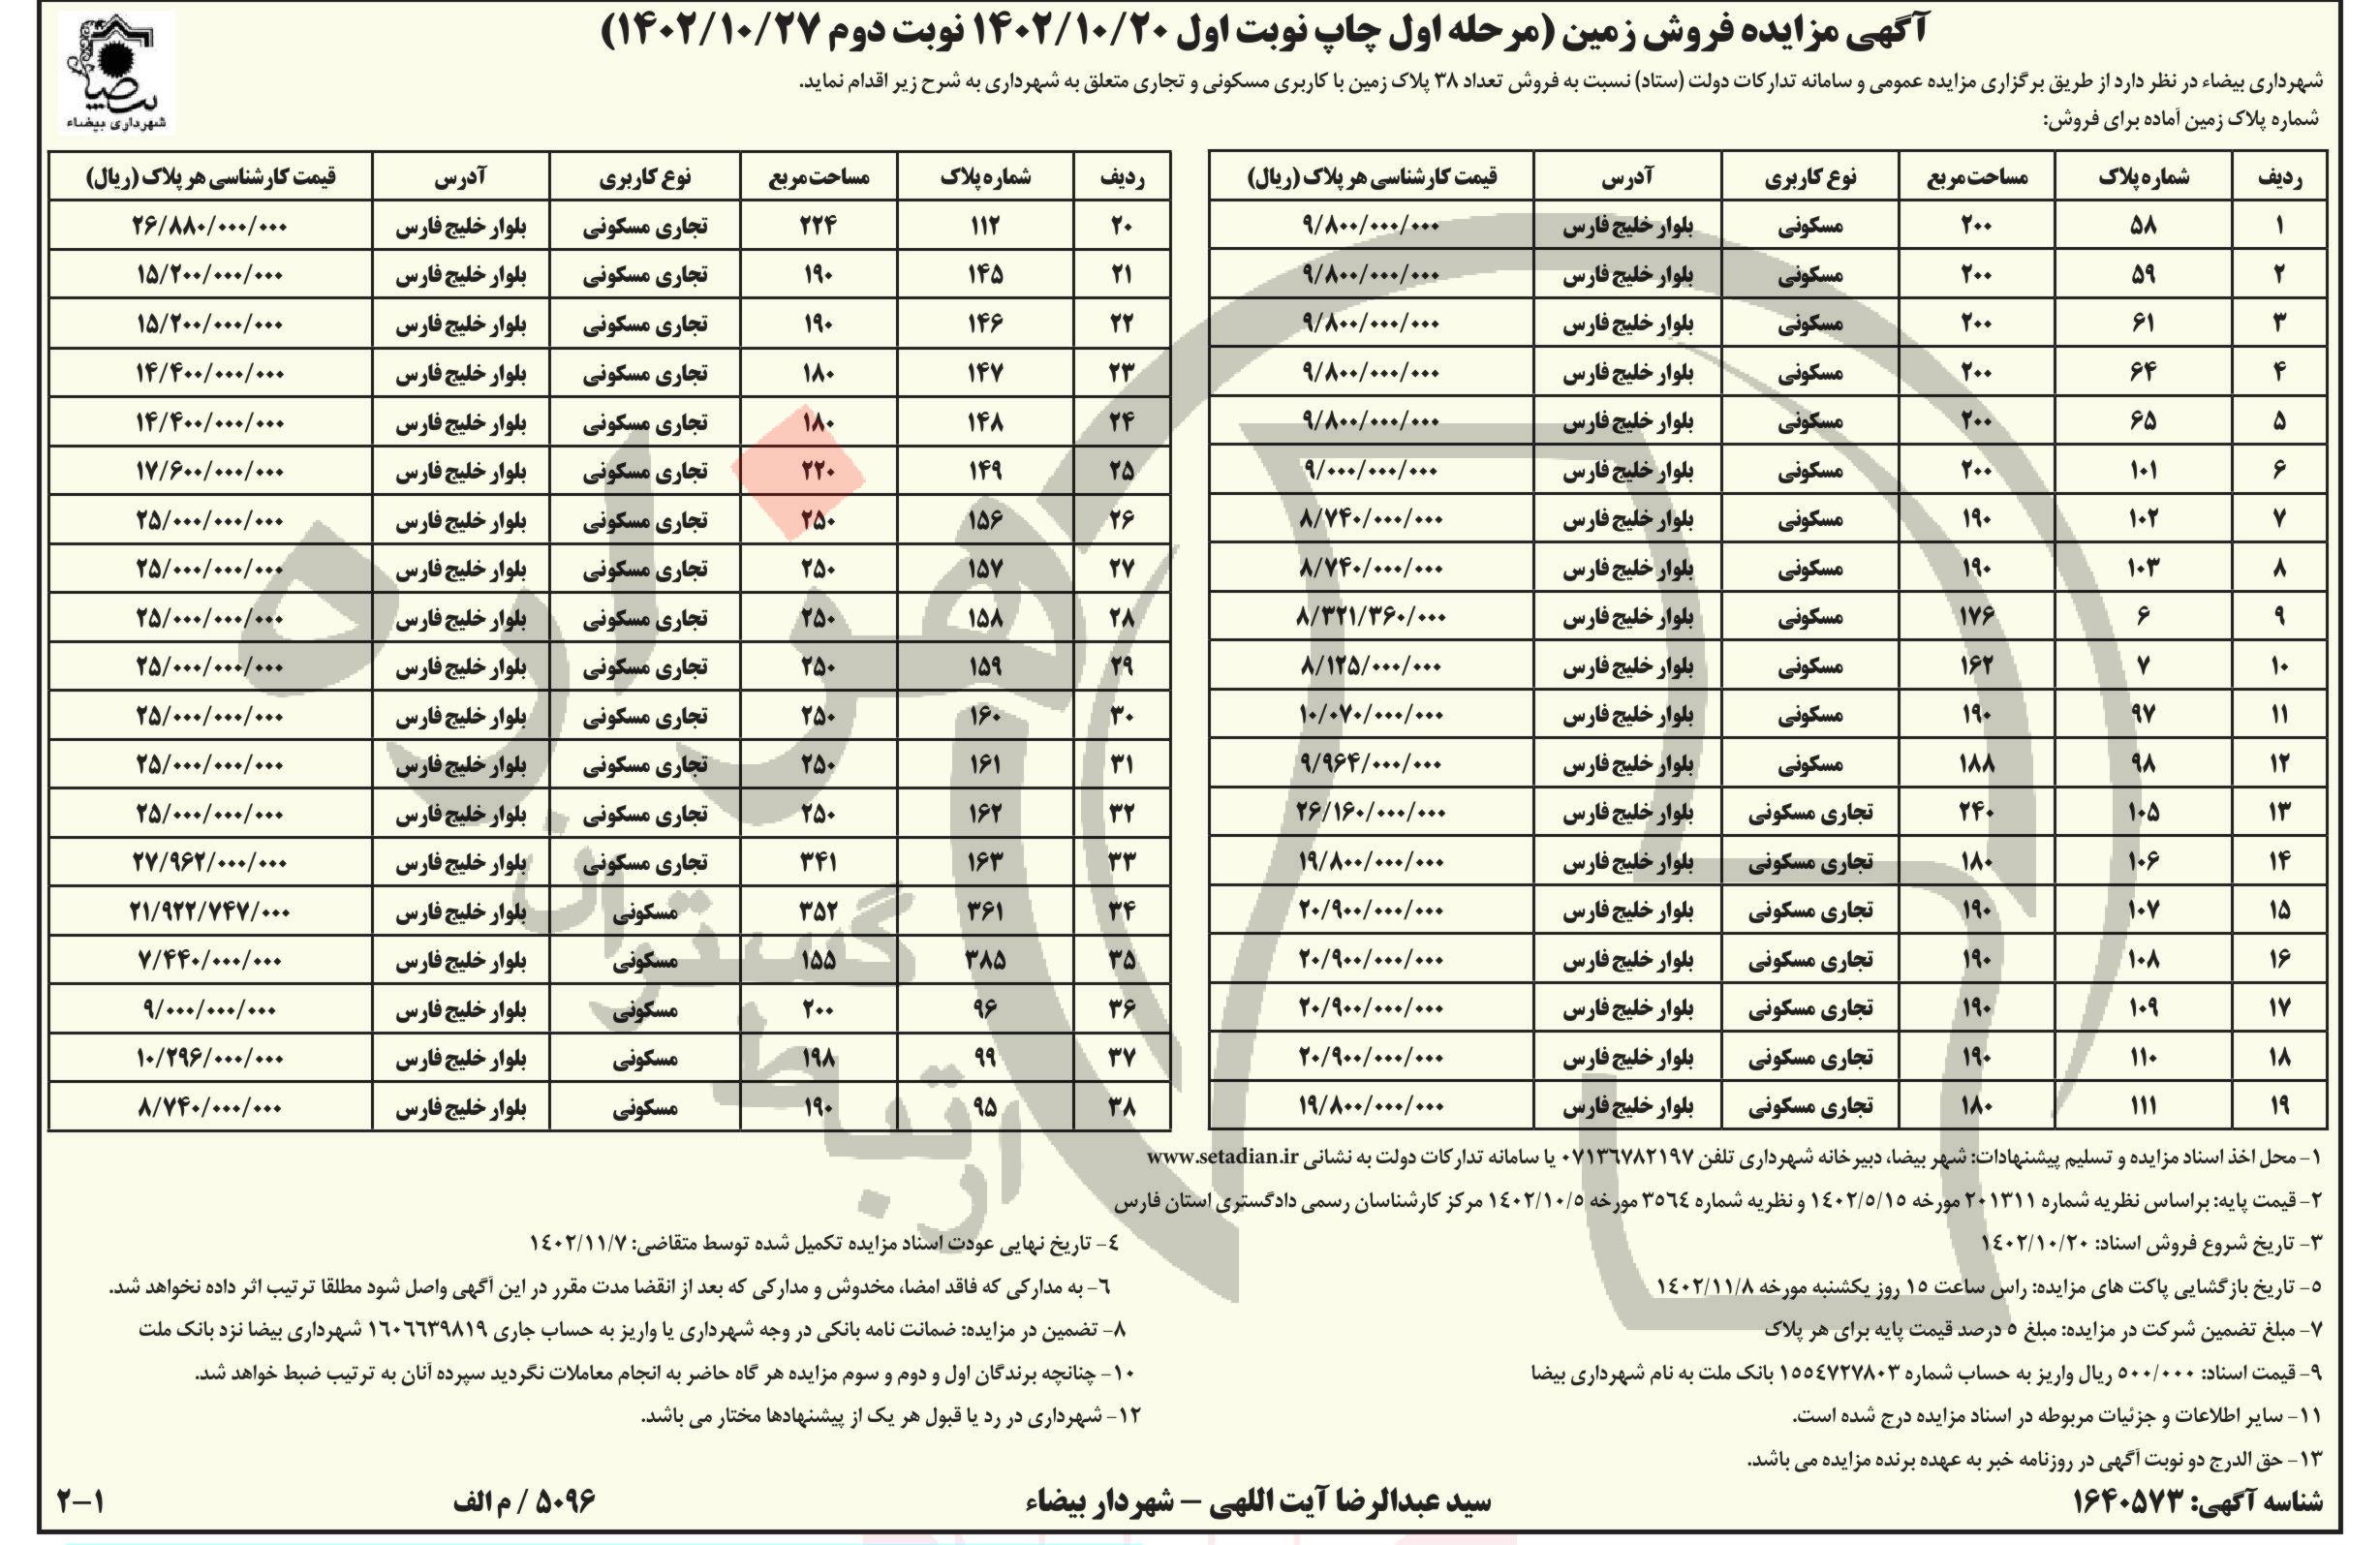 آگهی مزایده فروش زمین (مرحله اول چاپ نوبت اول ۱۴۰۲/۱۰/۲۰ نوبت دوم ۱۴۰۲/۱۰/۲۷)
شهرداری بیضاء
شهرداری بیضاء در نظر دارد از طریق برگزاری مزایده عمومی و سامانه تدارکات دولت (ستاد) نسبت به فروش تعداد ۳۸ پلاک زمین با کاربری مسکونی و تجاری متعلق به شهرداری به شرح زیر اقدام نماید.
شماره پلاک زمین آماده برای فروش:
ردیف شماره پلاک مساحت مربع نوع کاربری آدرس قیمت کارشناسی هر پلاک (ریال)
۱ ۵۸ ۲۰۰ مسکونی بلوار خلیج فارس ۹/۸۰۰/۰۰۰/۰۰۰
۲ ۵۹ ۲۰۰ مسکونی بلوار خلیج فارس ۹/۸۰۰/۰۰۰/۰۰۰
۳ ۶۱ ۲۰۰ مسکونی بلوار خلیج فارس ۹/۸۰۰/۰۰۰/۰۰۰
۴ ۶۴ ۲۰۰ مسکونی بلوار خلیج فارس ۹/۸۰۰/۰۰۰/۰۰۰
۵ ۶۵ ۲۰۰ مسکونی بلوار خلیج فارس ۹/۸۰۰/۰۰۰/۰۰۰
۶ ۱۰۱ ۲۰۰ مسکونی بلوار خلیج فارس ۹/۰۰۰/۰۰۰/۰۰۰
۷ ۱۰۲ ۱۹۰ مسکونی بلوار خلیج فارس ۸/۷۴۰/۰۰۰/۰۰۰
۸ ۱۰۳ ۱۹۰ مسکونی بلوار خلیج فارس ۸/۷۴۰/۰۰۰/۰۰۰
۹ ۶ ۱۷۶ مسکونی بلوار خلیج فارس ۸/۳۲۱/۳۶۰/۰۰۰
۱۰ ۷ ۱۶۲ مسکونی بلوار خلیج فارس ۸/۱۲۵/۰۰۰/۰۰۰
۱۱ ۹۷ ۱۹۰ مسکونی بلوار خلیج فارس ۱۰/۰۷۰/۰۰۰/۰۰۰
۱۲ ۹۸ ۱۸۸ مسکونی بلوار خلیج فارس ۹/۹۶۴/۰۰۰/۰۰۰
۱۳ ۱۰۵ ۲۴۰ تجاری مسکونی بلوار خلیج فارس ۲۶/۱۶۰/۰۰۰/۰۰۰
۱۴ ۱۰۶ ۱۸۰ تجاری مسکونی بلوار خلیج فارس ۱۹/۸۰۰/۰۰۰/۰۰۰
۱۵ ۱۰۷ ۱۹۰ تجاری مسکونی بلوار خلیج فارس ۲۰/۹۰۰/۰۰۰/۰۰۰
۱۶ ۱۰۸ ۱۹۰ تجاری مسکونی بلوار خلیج فارس ۲۰/۹۰۰/۰۰۰/۰۰۰
۱۷ ۱۰۹ ۱۹۰ تجاری مسکونی بلوار خلیج فارس ۲۰/۹۰۰/۰۰۰/۰۰۰
۱۸ ۱۱۰ ۱۹۰ تجاری مسکونی بلوار خلیج فارس ۲۰/۹۰۰/۰۰۰/۰۰۰
۱۹ ۱۱۱ ۱۸۰ تجاری مسکونی بلوار خلیج فارس ۱۹/۸۰۰/۰۰۰/۰۰۰
ردیف شماره پلاک مساحت مربع نوع کاربری آدرس قیمت کارشناسی هر پلاک (ریال)
۲۰ ۱۱۲ ۲۲۴ تجاری مسکونی بلوار خلیج فارس ۲۶/۸۸۰/۰۰۰/۰۰۰
۲۱ ۱۴۵ ۱۹۰ تجاری مسکونی بلوار خلیج فارس ۱۵/۲۰۰/۰۰۰/۰۰۰
۲۲ ۱۴۶ ۱۹۰ تجاری مسکونی بلوار خلیج فارس ۱۵/۲۰۰/۰۰۰/۰۰۰
۲۳ ۱۴۷ ۱۸۰ تجاری مسکونی بلوار خلیج فارس ۱۴/۴۰۰/۰۰۰/۰۰۰
۲۴ ۱۴۸ ۱۸۰ تجاری مسکونی بلوار خلیج فارس ۱۴/۴۰۰/۰۰۰/۰۰۰
۲۵ ۱۴۹ ۲۲۰ تجاری مسکونی بلوار خلیج فارس ۱۷/۶۰۰/۰۰۰/۰۰۰
۲۶ ۱۵۶ ۲۵۰ تجاری مسکونی بلوار خلیج فارس ۲۵/۰۰۰/۰۰۰/۰۰۰
۲۷ ۱۵۷ ۲۵۰ تجاری مسکونی بلوار خلیج فارس ۲۵/۰۰۰/۰۰۰/۰۰۰
۲۸ ۱۵۸ ۲۵۰ تجاری مسکونی بلوار خلیج فارس ۲۵/۰۰۰/۰۰۰/۰۰۰
۲۹ ۱۵۹ ۲۵۰ تجاری مسکونی بلوار خلیج فارس ۲۵/۰۰۰/۰۰۰/۰۰۰
۳۰ ۱۶۰ ۲۵۰ تجاری مسکونی بلوار خلیج فارس ۲۵/۰۰۰/۰۰۰/۰۰۰
۳۱ ۱۶۱ ۲۵۰ تجاری مسکونی بلوار خلیج فارس ۲۵/۰۰۰/۰۰۰/۰۰۰
۳۲ ۱۶۲ ۲۵۰ تجاری مسکونی بلوار خلیج فارس ۲۵/۰۰۰/۰۰۰/۰۰۰
۳۳ ۱۶۳ ۳۴۱ تجاری مسکونی بلوار خلیج فارس ۲۷/۹۶۲/۰۰۰/۰۰۰
۳۴ ۳۶۱ ۳۵۲ مسکونی بلوار خلیج فارس ۲۱/۹۲۲/۷۴۷/۰۰۰
۳۵ ۳۸۵ ۱۵۵ مسکونی بلوار خلیج فارس ۷/۴۴۰/۰۰۰/۰۰۰
۳۶ ۹۶ ۲۰۰ مسکونی بلوار خلیج فارس ۹/۰۰۰/۰۰۰/۰۰۰
۳۷ ۹۹ ۱۹۸ مسکونی بلوار خلیج فارس ۱۰/۲۹۶/۰۰۰/۰۰۰
۳۸ ۹۵ ۱۹۰ مسکونی بلوار خلیج فارس ۸/۷۴۰/۰۰۰/۰۰۰
هزاره
گستران
ارتباط
۱- محل اخذ اسناد مزایده و تسلیم پیشنهادات: شهر بیضا، دبیرخانه شهرداری تلفن ۰۷۱۳٦۷۸۲۱۹۷ یا سامانه تدارکات دولت به نشانی www.setadian.ir
۲- قیمت پایه: براساس نظریه شماره ۲۰۱۳۱۱ مورخه ۱٤۰۲/٥/۱٥ و نظریه شماره ۳٥٦٤ مورخه ۱٤۰۲/۱۰/٥ مرکز کارشناسان رسمی دادگستری استان فارس
۳- تاریخ شروع فروش اسناد: ۱٤۰۲/۱۰/۲۰
٤- تاریخ نهایی عودت اسناد مزایده تکمیل شده توسط متقاضی: ۱٤۰۲/۱۱/۷
٥- تاریخ بازگشایی پاکت های مزایده: راس ساعت ۱٥ روز یکشنبه مورخه ۱٤۰۲/۱۱/۸
٦- به مدارکی که فاقد امضا، مخدوش و مدارکی که بعد از انقضا مدت مقرر در این آگهی واصل شود مطلقا ترتیب اثر داده نخواهد شد.
۷- مبلغ تضمین شرکت در مزایده: مبلغ ٥ درصد قیمت پایه برای هر پلاک
۸- تضمین در مزایده: ضمانت نامه بانکی در وجه شهرداری یا واریز به حساب جاری ۱٦۰٦٦۳۹۸۱۹ شهرداری بیضا نزد بانک ملت
۹- قیمت اسناد: ٥۰۰/۰۰۰ ریال واریز به حساب شماره ۱٥٥٤۷۲۷۸۰۳ بانک ملت به نام شهرداری بیضا
۱۰- چنانچه برندگان اول و دوم و سوم مزایده هر گاه حاضر به انجام معاملات نگردید سپرده آنان به ترتیب ضبط خواهد شد.
۱۱- سایر اطلاعات و جزئیات مربوطه در اسناد مزایده درج شده است.
۱۲- شهرداری در رد یا قبول هر یک از پیشنهادها مختار می باشد.
۱۳- حق الدرج دو نوبت آگهی در روزنامه خبر به عهده برنده مزایده می باشد.
شناسه آگهی: ۱۶۴۰۵۷۳ سید عبدالرضا آیت اللهی – شهردار بیضاء ۵۰۹۶ / م الف ۲–۱